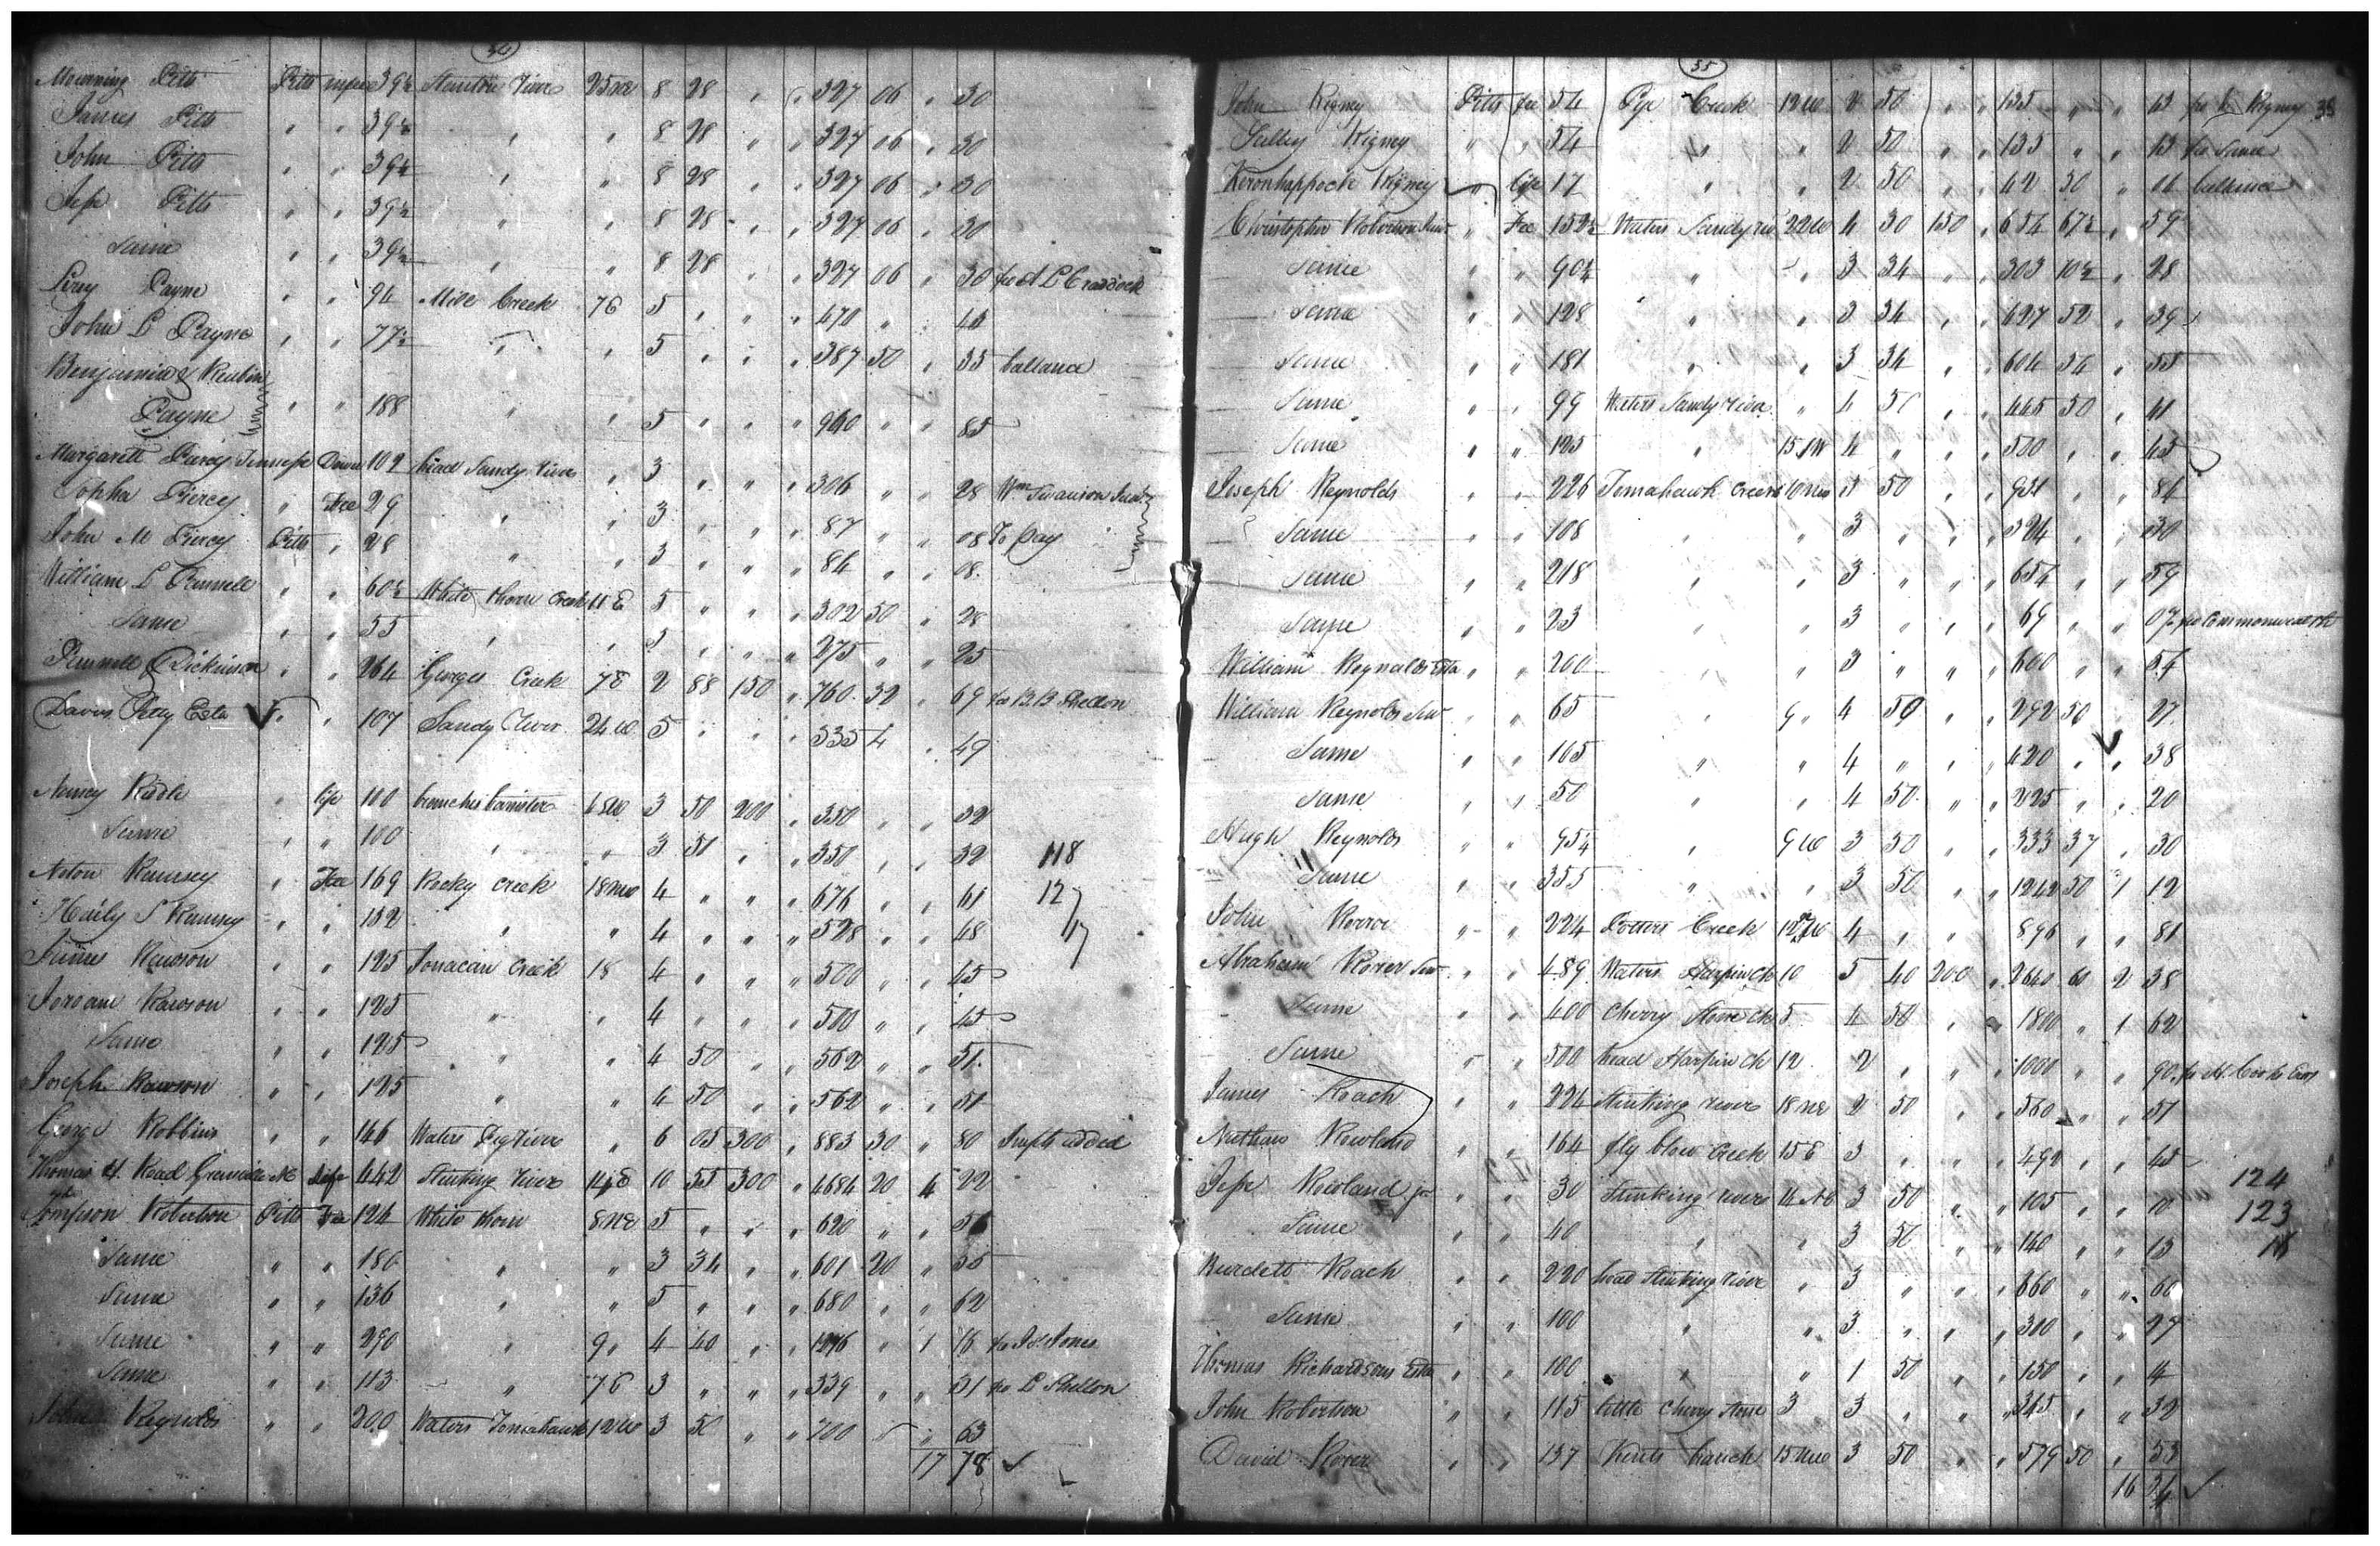 34
Mourning Pitts Pitts 39½ Stanton River 25 NE 8 28 " " 327 06 " 30
James Pitts " " 39½ " " 8 28 " " 327 06 " 30
John Pitts " " 39½ " " 8 28 " " 327 06 " 30
Jesse Pitts " " 39½ " " 8 28 " " 327 06 " 30
Same " " 39½ " " 8 28 " " 327 06 " 30 fro A L Craddock
Levy Payne " " 94 Mill Creek 7 E 5 " " " 470 " " 43
John L Payne " " 77½ " " 5 " " " 387 50 " 35 ballance
Benjamin & Reubin
Payne " " 188 " " 5 " " " 940 " " 85
Margarett Piercy Tennessee Dower 102 head Sandy River " 3 " " " 306 " " 28 Wm Swanson
Sopha Piercy " Fee 29 " " 3 " " " 87 " " 08 To pay
John M Piercy Pitts " 28 " " 3 " " " 84 " " 08
William L Pannell " " 60½ White thorn Creek 11 E 5 " " " 302 50 " 28
Same " " 55 " " 5 " " " 275 " " 25
Pannell & Dickinson " " 264 Georges Creek 7 E 2 88 150 " 760 32 " 69 fro B B Shelton
Davis Petty Esta " " 107 Sandy River 24 W 5 " " " 535 4 " 49
Nancy Riddle " life 100 branches banister 6 SW 3 50 200 " 350 " " 32
Same " " 100 " " 3 50 " " 350 " " 32 118
Ramsey " Fee 169 Rocky Creek 18 NW 4 " " " 676 " " 61 12
Haily S Ramsey " " 132 " " 4 " " " 528 " " 48 117
James Rawson " " 125 Tomacan Creek 18 4 " " " 500 " " 45
Rawson " " 125 " " 4 " " " 500 " " 45
Same " " 125 " " 4 50 " " 562 " " 51
Joseph Rawson " " 125 " " 4 50 " " 562 " " 51
George Robbins " " 146 Waters Pig River " 6 05 300 " 883 30 " 80 Impts added
Thomas H. Road life 442 Stinking River 14 E 10 55 300 " 4684 20 4 22
Robertson Pitts Fee 124 White thorn 8 NE 5 " " " 620 " " 56
Same " " 180 " " 3 34 " " 601 20 " 55
Same " " 136 " " 5 " " " 680 " " 62
Same " " 290 " 9 " 4 40 " " 1276 " 1 16 fro Jones
Same " " 113 " 7 E 3 " " " 339 " " 31 fro L Shelton
John Reynolds " " 200 Waters Tomahawk 12 W 3 50 " " 700 " " 63
17 78
35
John Rigney Pitts fee 54 Pye Creek 12 W 2 50 " " 135 " " 13 fro Rigney 35
Salley Rigney " " 54 " " 2 50 " " 135 " " 13 fro Same
Keronhappock Rigney " life 17 " " 2 50 " " 42 50 " 04 ballance
Christopher Robertson " Fee 152½ Waters Sandy riv 22 W 4 30 150 " 654 67½ " 59
Same " " 90¾ " " 3 34 " " 303 10½ " 28
Same " " 128 " " 3 34 " " 427 52 " 39
Same " " 181 " " 3 34 " " 604 54 " 55
Same " " 99 Waters Sandy River " 4 50 " " 445 50 " 41
Same " " 125 " 15 W 4 " " " 500 " " 45
Joseph Reynolds " " 226 Tomahawk Creek 10 NW 50 " " " " 84
Same " " 108 " " 3 " " " 324 " " 30
Same " " 218 " " 3 " " " 654 " " 59
Same " " 23 " " 3 " " " 69 " " 07 fro Commonwealth
William Reynolds Esta " " 200 " " 3 " " " 600 " " 54
William Reynolds Senr " " 65 " 9 " 4 50 " " 292 50 " 27
Same " " 105 " " 4 " " " 420 " " 38
Same " " 50 " " 4 50 " " 225 " " 20
Hugh Reynolds " " 95¼ " 9 W 3 50 " " 333 37 " 30
Same " " 355 " " 3 50 " " 1242 50 1 12
John Rorer " " 224 Potters Creek 12 W 4 " " " 896 " " 81
Abraham Rorer Senr " " 489 Waters Harpin Ck 10 5 40 200 " 2640 60 2 38
Same " " 400 Cherry Stone Ck 5 4 50 " " 1800 " 1 62
Same " " 500 head Harpin Ck 12 2 " " " 1000 " " 90 fro H. Cooks Exors
James Roach " " 224 Stinking River 18 NE 2 50 " " 560 " " 51
Nathan Rowland " " 164 fly blow Creek 15 E 3 " " " 492 " " 45
Jesse Rowland jr " " 30 Stinking River 14 NE 3 50 " " 105 " " 10 124
Same " " 40 " " 3 50 " " 140 " " 13 123
Burdett Roach " " 220 head Stinking River " 3 " " " 660 " " 60
Same " " 100 " " 3 " " " 300 " " 27
Thomas Richardsons Esta " " 100 " " 1 50 " " 150 " " 14
John Robertson " " 115 little Cherry Stone 3 3 " " " 345 " " 32
David Rorer " " 137 Kents branch 15 NW 3 50 " " 579 50 " 53
16 24